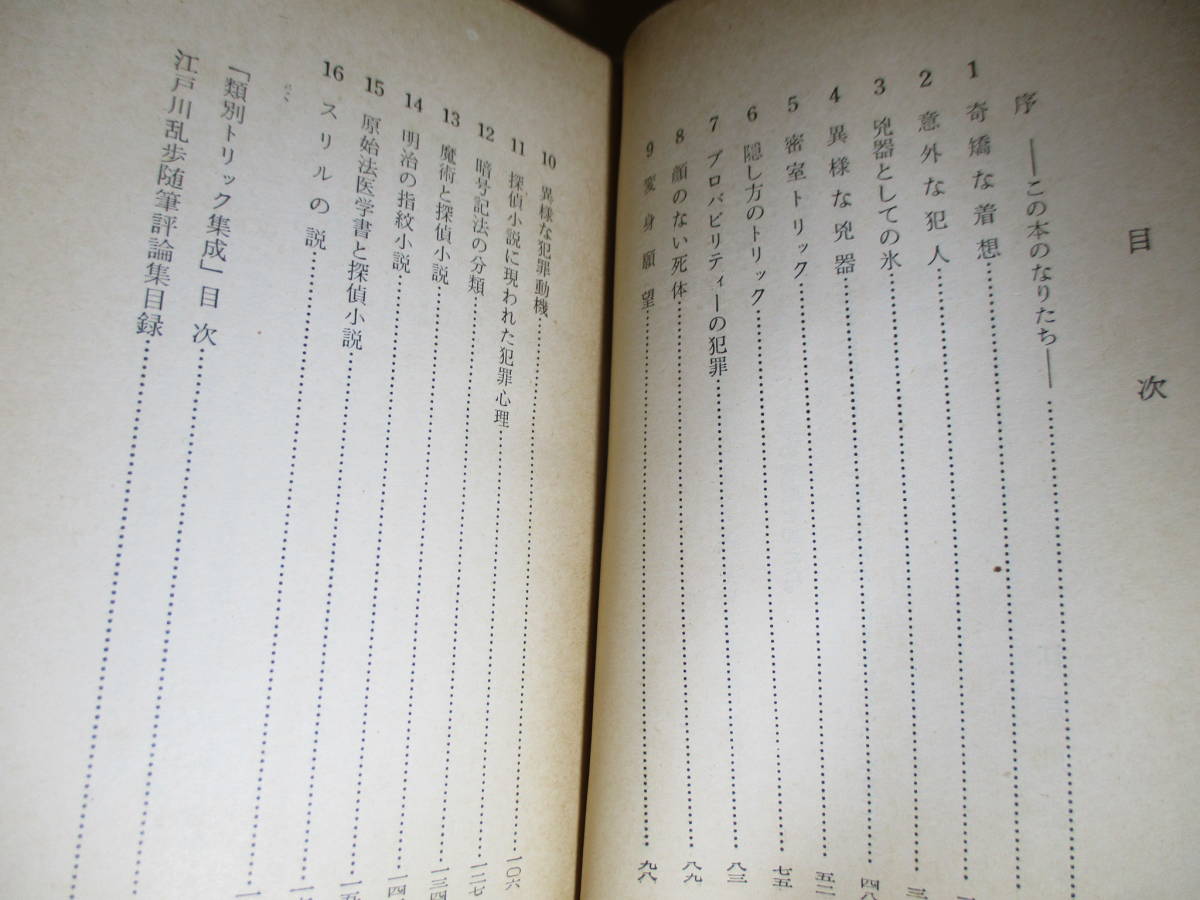 目次
序 ――この本のなりたち――
1 奇矯な着想
2 意外な犯人
3 兇器としての氷
4 異様な兇器 五二
5 密室トリック 七五
6 隠し方のトリック 八三
7 プロバビリティーの犯罪 八九
8 顔のない死体 九八
9 変身願望
10 異様な犯罪動機 一〇六
11 探偵小説に現われた犯罪心理 一二七
12 暗号記法の分類 一三四
13 魔術と探偵小説
14 明治の指紋小説
15 原始法医学書と探偵小説
16 スリルの説
「類別トリック集成」目次
江戸川乱歩随筆評論集目録